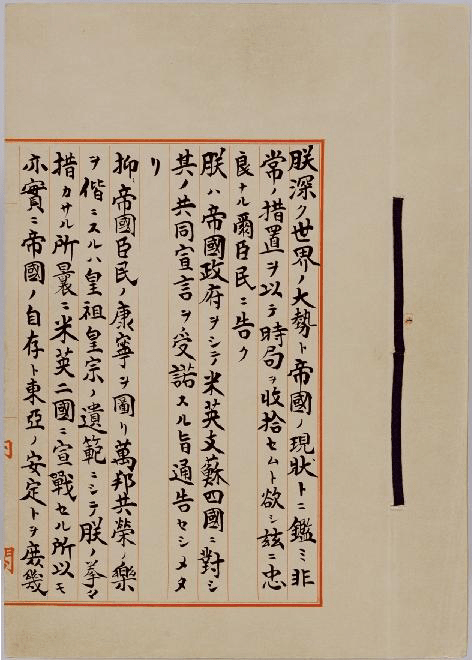 朕深ク世界ノ大勢ト帝國ノ現狀トニ鑑ミ非
常ノ措置ヲ以テ時局ヲ收拾セムト欲シ玆ニ忠
良ナル爾臣民ニ告ク
朕ハ帝國政府ヲシテ米英支蘇四國ニ對シ
其ノ共同宣言ヲ受諾スル旨通告セシメタ
リ
抑帝國臣民ノ康寧ヲ圖リ萬邦共榮ノ樂
ヲ偕ニスルハ皇祖皇宗ノ遺範ニシテ朕ノ拳々
措カサル所曩ニ米英二國ニ宣戰セル所以モ
亦實ニ帝國ノ自存ト東亞ノ安定トヲ庶幾
內閣